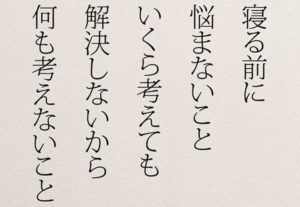 寝る前に
悩まないこと
いくら考えても
解決しないから
何も考えないこと